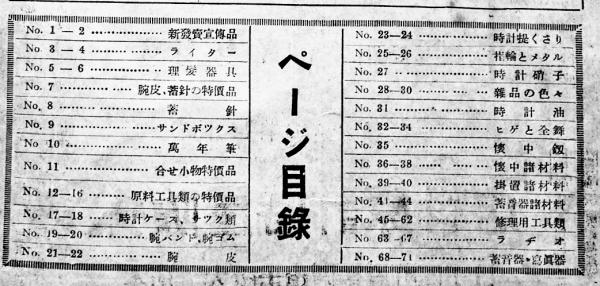 No. 1—2 新發賣宣傳品
No. 3—4 ライター
No. 5—6 理髪器具
No. 7 腕皮、蓄針の特價品
No. 8 蓄針
No. 9 サンドボックス
No 10 萬年筆
No. 11 合せ小物特價品
No. 12—16 原料工具類の特價品
No. 17—18 時計ケース、サック類
No. 19—20 腕バンド、腕ゴム
No. 21—22 腕皮
ページ目錄
No. 23—24 時計提くさり
No. 25—26 指輪とメタル
No. 27 時計硝子
No 28—30 雜品の色々
No. 31 時計油
No. 32—34 ヒゲと全舞
No. 35 懷中側
No. 36—38 懷中諸材料
No. 39—40 掛置諸材料
No. 41—44 蓄音器諸材料
No. 45—62 修理用工具類
No. 63—67 ラヂオ
No. 68—71 蓄音器・寫眞器